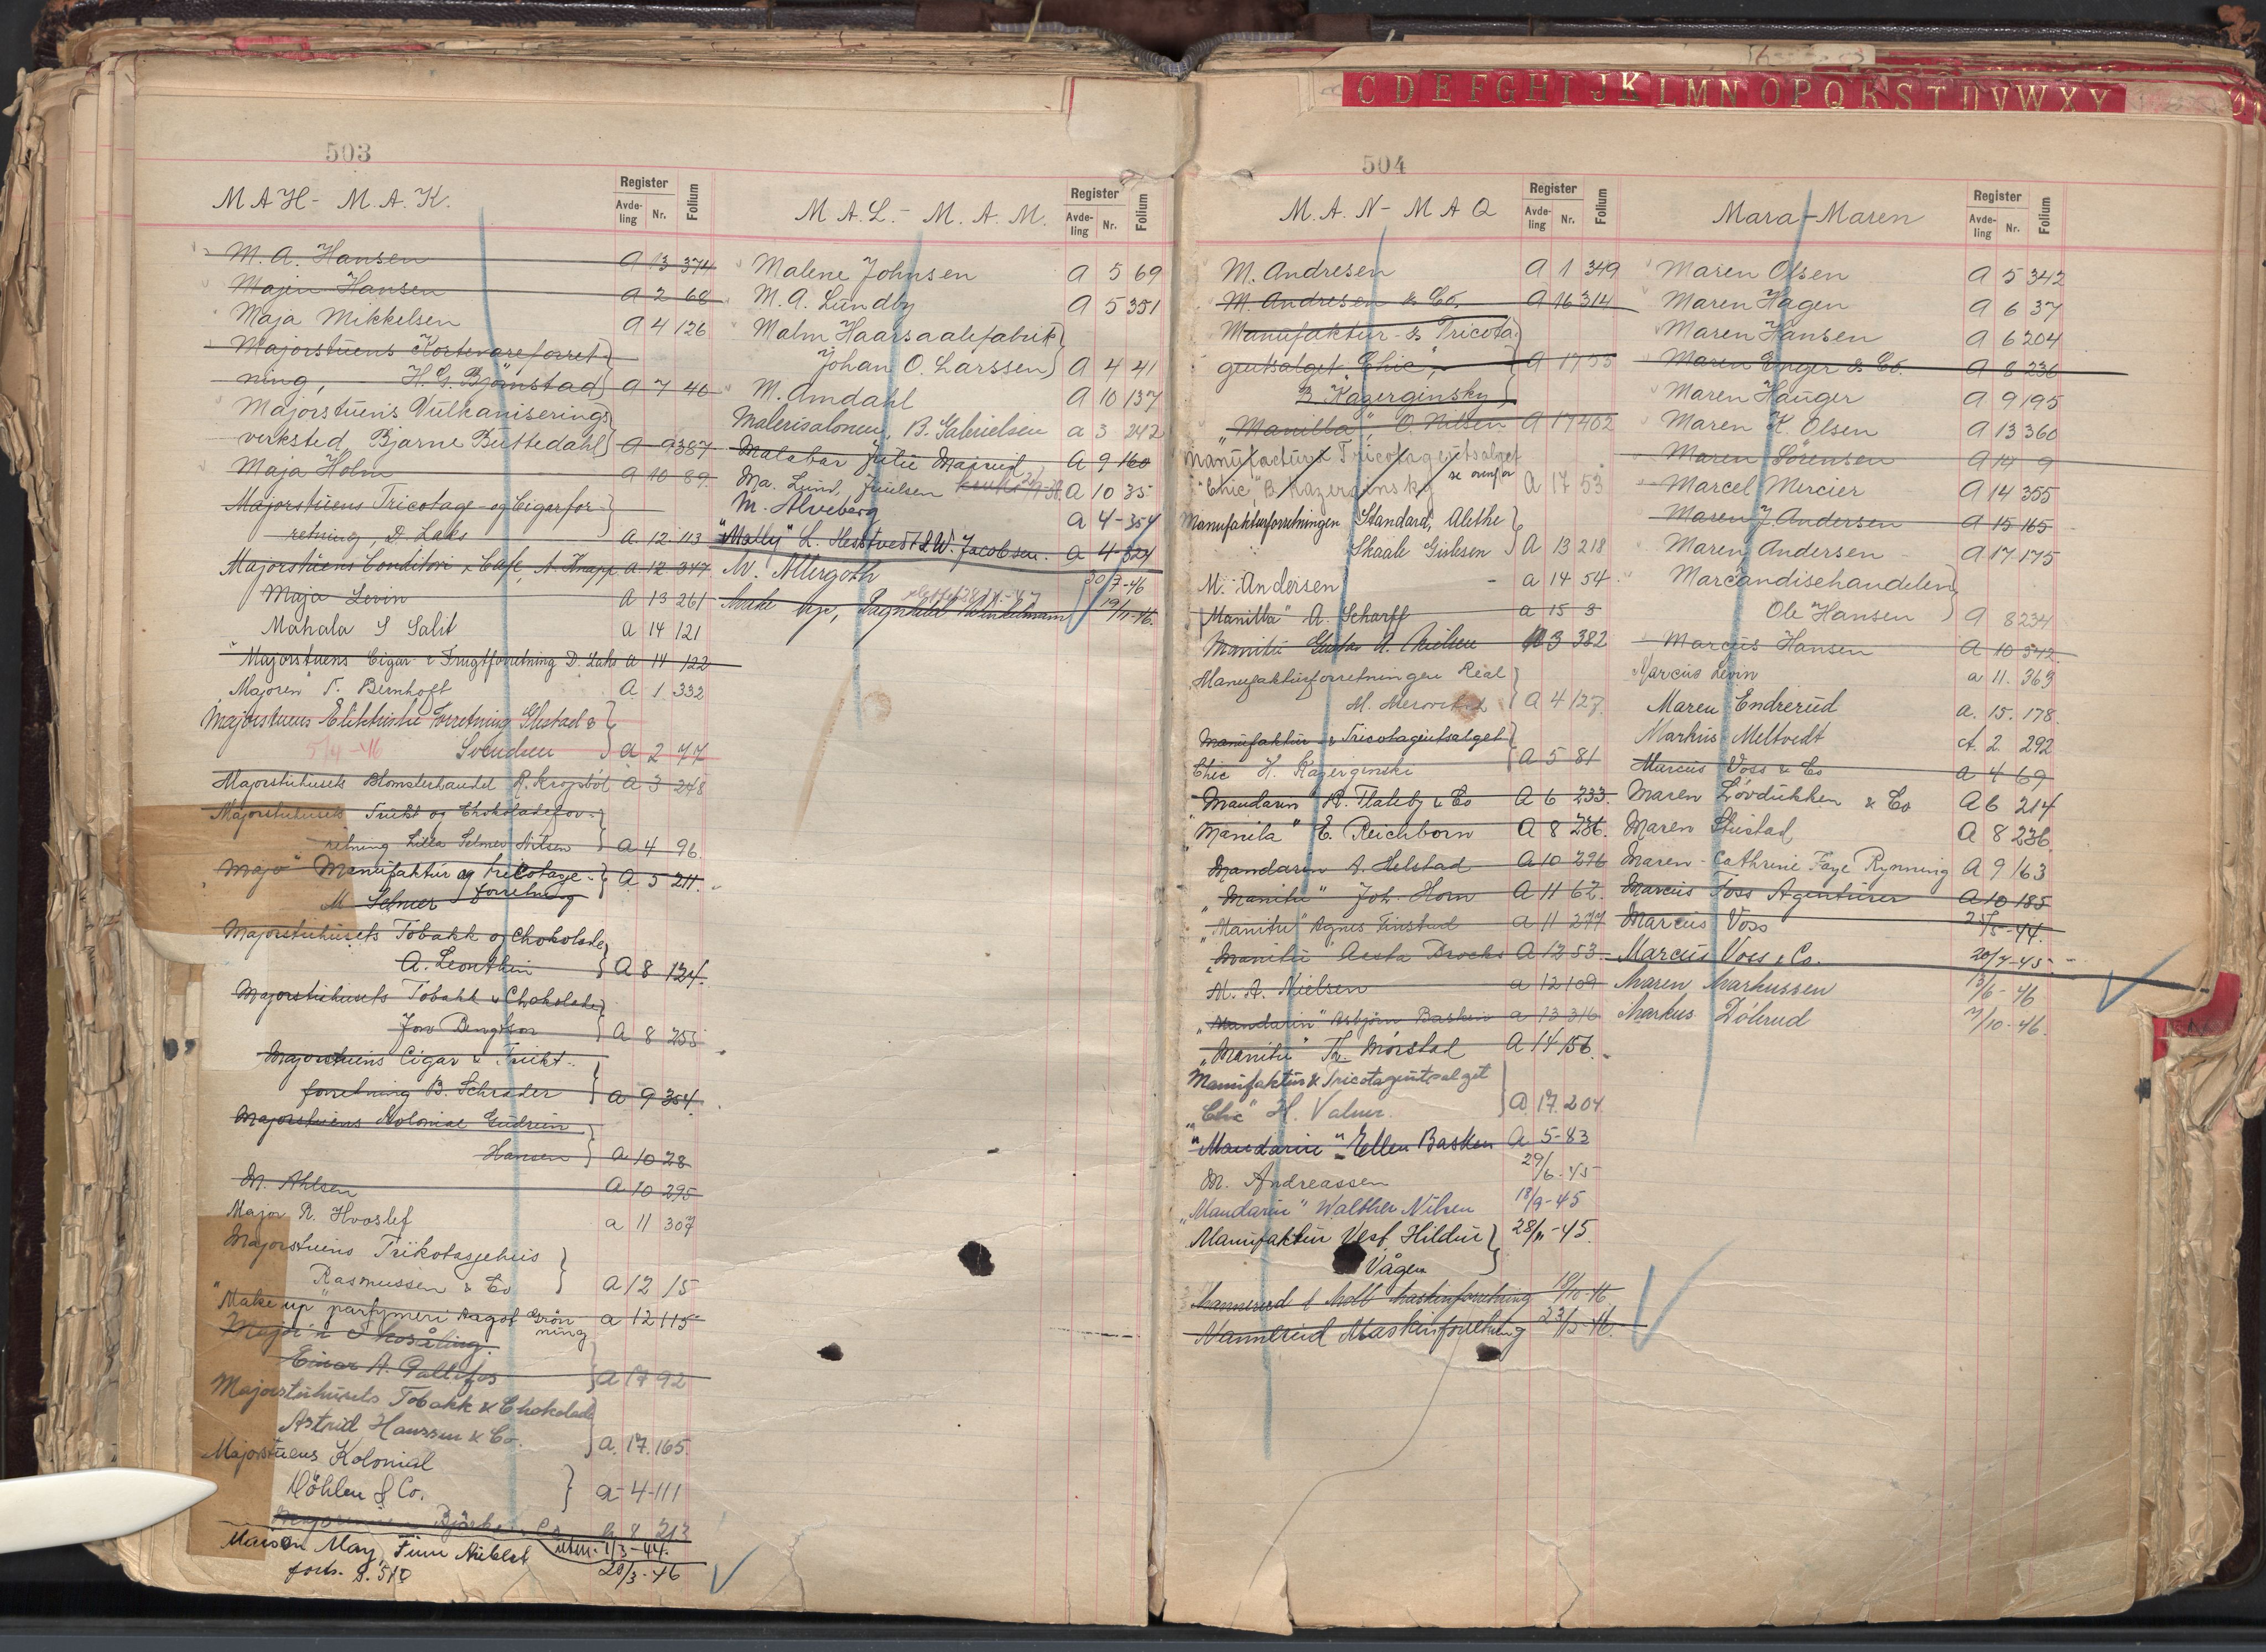 503
MAH - M.A.K.
Register
Avde-
ling
Nr.
Folium
M. A. Hansen A 13 374
Majen Hansen A 2 68
Maja Mikkelsen A 4 126
Majorstuens Kortevareforret-
ning, H. G. Björnstad A 7 40
Majorstuens Vulkaniserings
verksted, Bjarne Buttedahl A 9 387
Maja Holm A 10 89
Majorstuens Tricotage- og Cigarfor-
retning, D. Laks A 12 113
Majorstuens Conditori & Café, A. Knapp A 12 347
Maja Levin A 13 261
Mahala S Salit A 14 121
"Majorstuens Cigar & Frugtforretning D. Laks A 14 122
"Majoren" T. Bernhoft A 1 332
Majorstuens Elektriske Forretning Glestad &
5/4-46 Svendsen A 2 77
Majorstuhusets Blomsterhandel R. A 3 248
Majorstuhusets Frukt og Chokoladefor-
retning Lilla Selmer Nilsen A 4 96
"Majo" Manufaktur og tricotage-
M Selmer forretning A 5 211
Majorstuhusets Tobakk og Chokolade
A. Leonthin A 8 124
Majorstuhusets Tobakk & Chokolade
Jon Bengtson A 8 255
Majorstuens Cigar & Frukt-
forretning B. Schrader A 9 354
Majorstuens Kolonial Gudrun
Hansen A 10 28
M. Ahlsen A 10 295
Major R. Hvoslef A 11 307
Majorstuens Trikotasjehus
Rasmussen & Co A 12 15
"Make up" parfymeri Ragot Grön
ning A 12 115
Einar A. A 17 92
Majorstuhusets Tobakk & Chokolade
Astrid Hanssen & Co. A. 17. 165.
Majorstuens Kolonial
Döhlen & Co. A-4-111
Bjerke & Co A 8 213
Maison May, Finn 1/3-44.
forts. S. 510 20/3-46
M.A.L. - M.A.M.
Register
Avde-
ling
Nr.
Folium
Malene Johnsen A 5 69
M. A. Lundby A 5 351
Malm Haarsaalefabrik
Johan O. Larssen A 4 41
M. Amdahl A 10 137
Malerisalonen, B. Gabrielsen A 3 242
Malabar Julie Majrud A 9 160
Ma. Lund, Juulsen A 10 35
M. Alveberg A 4-354
"Mally" L. Hesstvedt & W. Jacobsen. A 4-324
M. Allergoth 30/7-46
slettet 28/11-47
Make Up, Ragnhild Winkelmann 19/11-46.
504
M.A.N - MAQ
Register
Avde-
ling
Nr.
Folium
M. Andresen A 1 349
M. Andresen & Co. A 16 314
Manufaktur- & Tricota-
geutsalget "Chic", A 17 53
B. Kazerginsky
"Manilla", O. Nilsen A 17 402
Manufactur & Tricotageutsalget
"Chic" B. Kazerginsky se ovenfor A 17 53
Manufakturforretningen Standard, Alethe
Skaale Gislesen A 13 218
M. Andersen A 14 54
"Manilla" A. Scharff A 15 3
Manitu Gustav A. Nielsen 13 382
Manufakturforretningen Real
M. A 4 127
Manufaktur- & Tricotageutsalget
Chic H. Kazerginski A 5 81
Mandarin R. Flateby & Co A 6 233.
"Manila" E. Reichborn A 8 236.
Mandarin A. Helstad A 10 296
"Manitu" Joh. Horn A 11 62
"Manitu" Agnes Finstad A 11 277
"Manitu" Aesta Brochs A 12 53
M. A. Nielsen A 12 109
"Mandarin" Asbjörn Basken A 13 316
"Manitu" Th. Mörstad A 14 156.
Manufaktur & Tricotageutsalget
"Chic" H. Valner. A 17. 204
"Mandarin" Ellen Basken A 5-83
M. Andreassen 29/6-45
"Mandarin" Walther Nilsen 18/9-45
Manufaktur Vesf. Hildur 28/11-45.
Vågen
Mannerud & Moll Maskinforretning 18/10-46
Mannerud Maskinforretning 23/12-46.
Mara-Maren
Register
Avde-
ling
Nr.
Folium
Maren Olsen A 5 342
Maren Hagen A 6 37
Maren Hansen A 6 204
Maren Enger & Co. A 8 236
Maren Hauger A 9 195
Maren K. Olsen A 13 360
Maren Sörensen A 14 9
Marcel Mercier A 14 355
Maren J Andersen A 15 165
Maren Andersen A 17 175
Marcandisehandelen,
Ole Hansen A 8 234
Marcus Hansen A 10 542
Marcus Levin A 11. 363
Maren Endrerud A. 15. 178.
Markus Meltvedt A. 2. 292
Marcus Voss & Co A 4 69
Maren Lövdukken & Co A 6 214
Maren Stustad A 8 236
Maren-Cathrine Faye Rynning A 9 163
Marcus Foss Agenturer A 10 185
Marcus Voss 25/5-44.
Marcus Voss & Co. 20/7-45
Maren Markussen 13/6-46
Markus Dölerud 7/10-46.
C D E F G H I J K L M N O P Q R S T U V W X Y